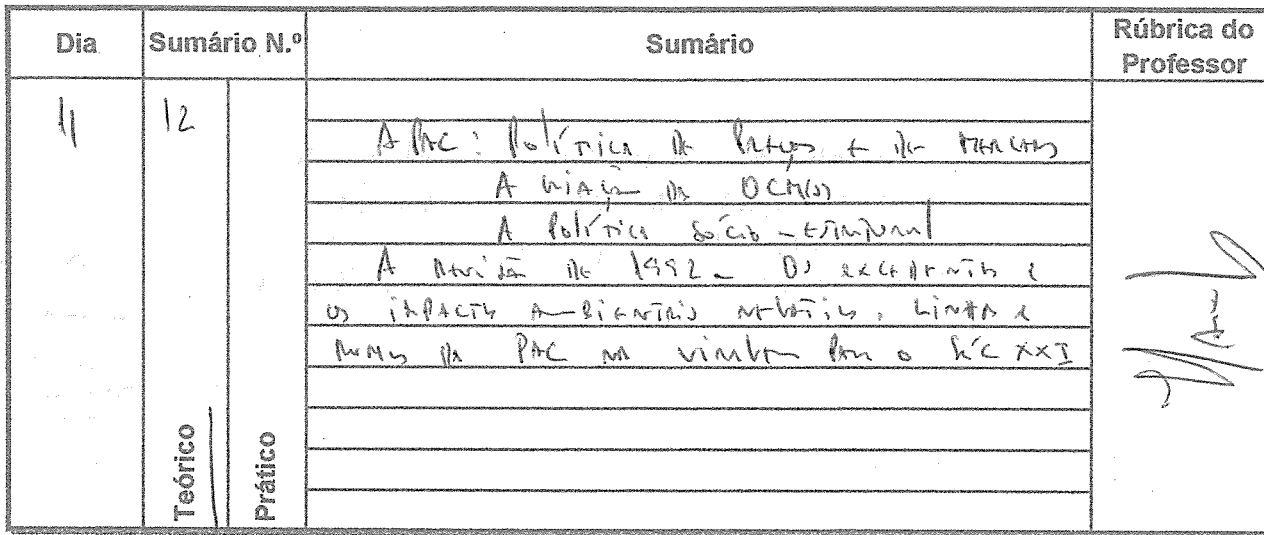 Dia Sumário N.º Sumário Rúbrica do
Professor
11 12
A PAC: Política de Preços e de Mercados
A criação da OCM(s)
A Política Sócio-estrutural
A revisão de 1992 - Os excedentes e
os impactos ambientais negativos. Linhas e
rumos da PAC na viragem para o Séc XXI
Teórico
Prático